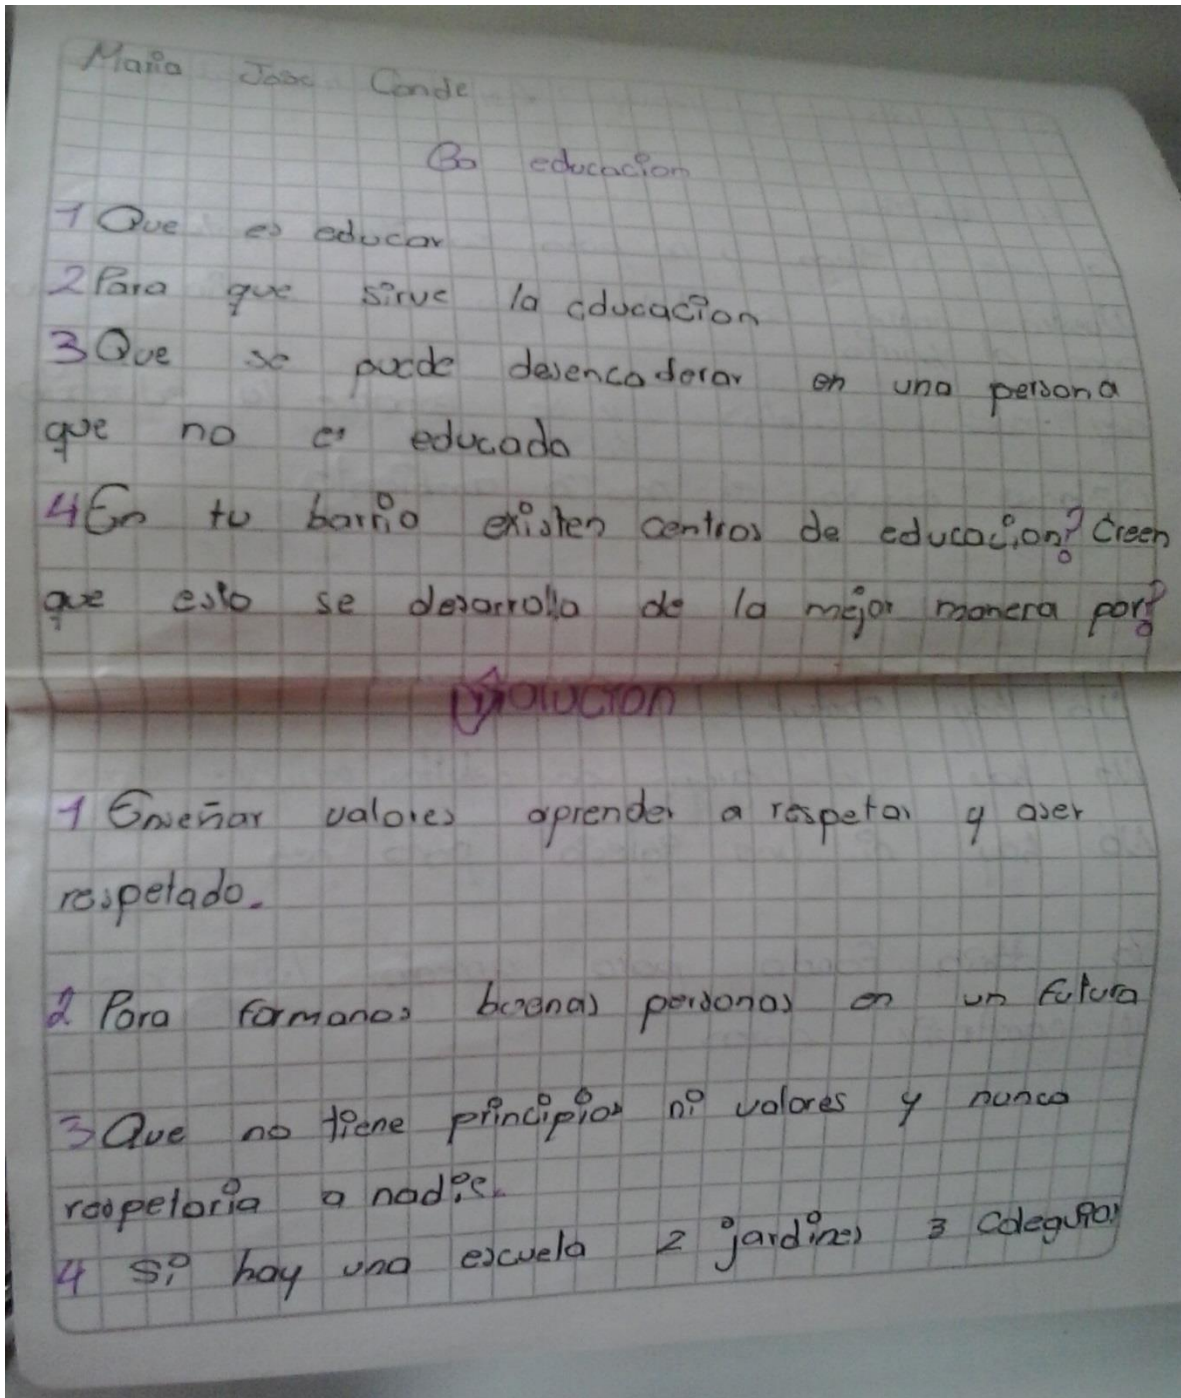 Maria Jose Conde
La educacion
1 Que es educar
2 Para que sirve la educacion
3 Que se puede desencaderar en una persona
que no es educada
4 En tu barrio existen centros de educacion? Creen
que esto se desarrolla de la mejor manera por?
Solucion
1 Enseñar valores aprender a respetar y aser
respetado.
2 Para formanos buenas personas en un futura
3 Que no tiene principios ni valores y nunca
respetaria a nadie.
4 Si hay una escuela 2 jardines 3 Coleguios